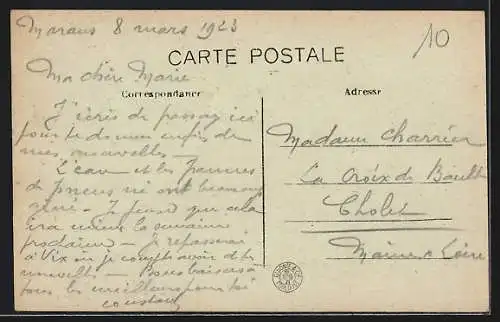 Marans 8 mars 1923
10
CARTE POSTALE
Ma chère Marie
Correspondance
Adresse
J'écris de passage ici
pour te donner enfin de
mes nouvelles –
L'eau et les pannes
de pneus m'ont beaucoup
gêné – Je pense que cela
ira mieux la semaine
prochaine – Je repasserai
à Vix où je compte avoir de tes
nouvelles – Bons baisers à
tous les meilleurs pour toi
Madame Charrier
La Croix de Bault
Cholet
Maine & Loire